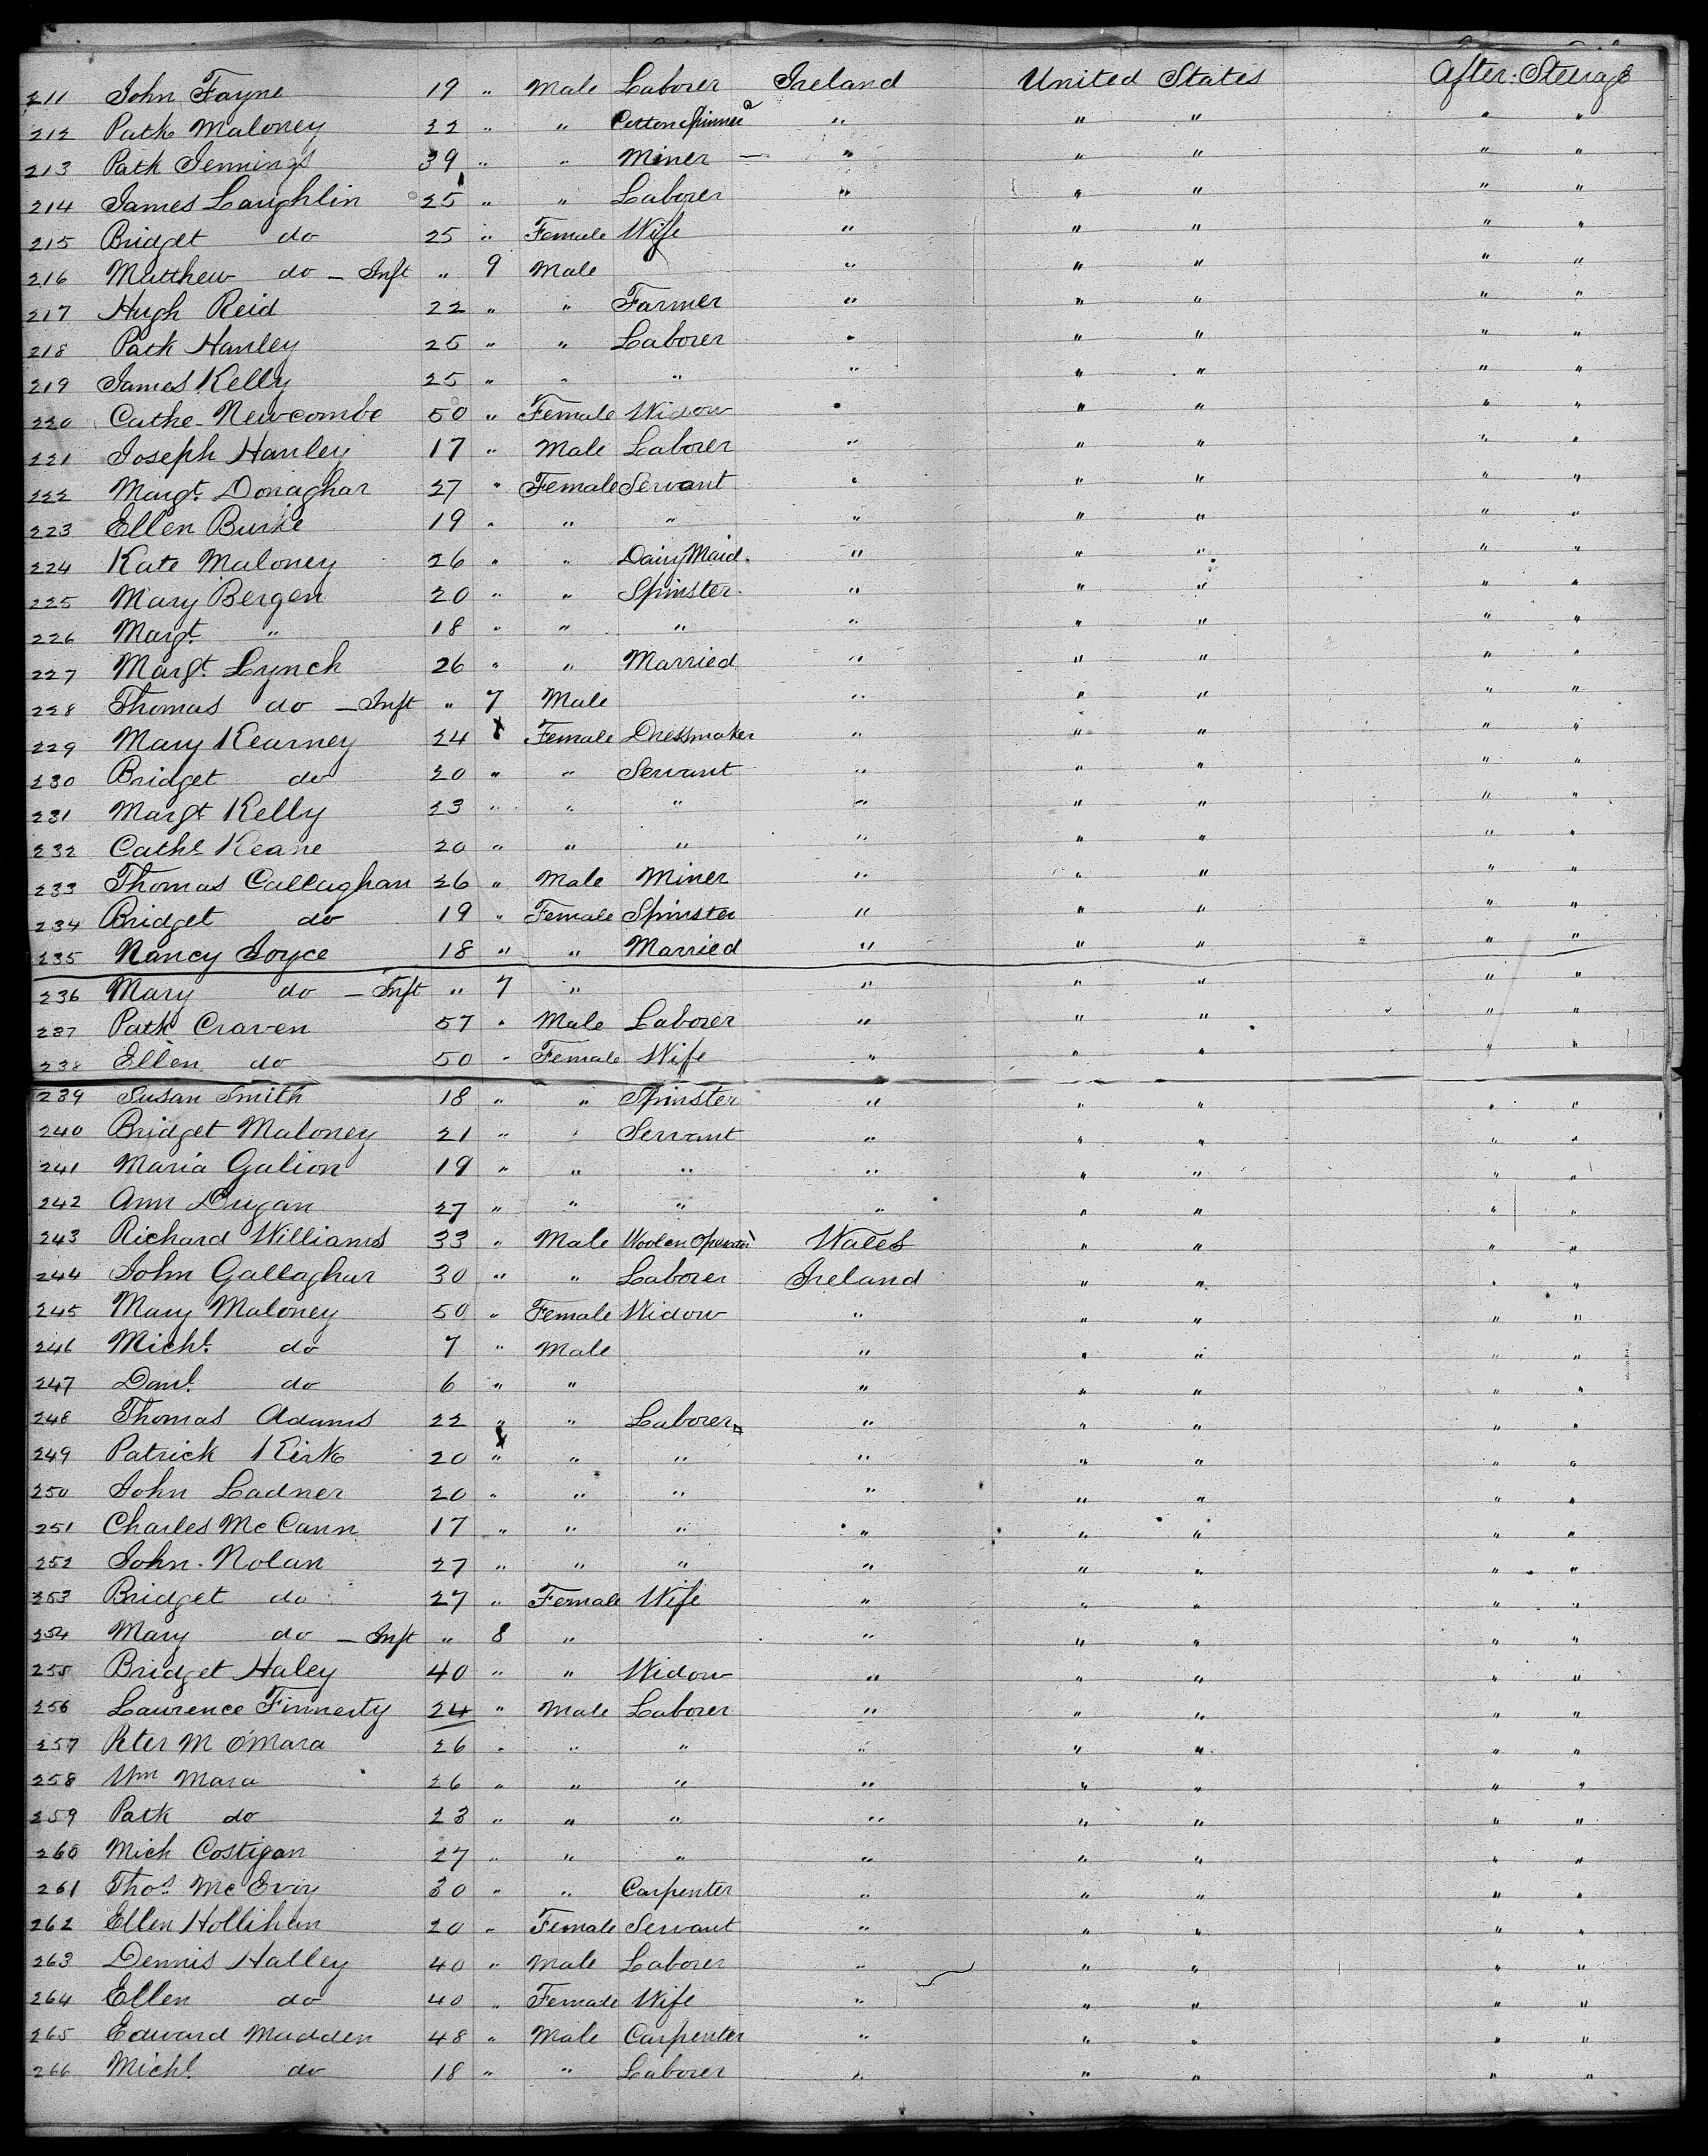 211 John Fayne 19 " Male Laborer Ireland United States After Steerage
212 Patk Maloney 22 " " Cotton Spinner " " " " "
213 Patk Jennings 39 " " Miner — " " " " "
214 James Laughlin 25 " " Laborer " " " " "
215 Bridget do 25 " Female Wife " " " " "
216 Matthew do — Inft " 9 Male " " " " "
217 Hugh Reid 22 " " Farmer " " " " "
218 Patk Hanley 25 " " Laborer " " " " "
219 James Kelly 25 " " " " " " " "
220 Cathe Newcombe 50 " Female Widow " " " " "
221 Joseph Hanley 17 " Male Laborer " " " " "
222 Margt. Donaghar 27 " Female Servant " " " " "
223 Ellen Burke 19 " " " " " " " "
224 Kate Maloney 26 " " Dairy Maid. " " " " "
225 Mary Bergen 20 " " Spinster " " " " "
226 Margt. " 18 " " " " " " " "
227 Margt. Lynch 26 " " Married " " " " "
228 Thomas do — Inft " 7 Male " " " " "
229 Mary Kearney 24 Female Dressmaker " " " " "
230 Bridget do 20 " " Servant " " " " "
231 Margt Kelly 23 " " " " " " " "
232 Cathe Keane 20 " " " " " " " "
233 Thomas Callaghan 26 " Male Miner " " " " "
234 Bridget do 19 " Female Spinster " " " " "
235 Nancy Joyce 18 " " Married " " " " "
236 Mary do — Inft " 7 " " " " " "
237 Patk Craven 57 " Male Laborer " " " " "
238 Ellen do 50 " Female Wife " " " " "
239 Susan Smith 18 " " Spinster " " " " "
240 Bridget Maloney 21 " " Servant " " " " "
241 Maria Galion 19 " " " " " " " "
242 Ann Dugan 27 " " " " " " " "
243 Richard Williams 33 " Male Woolen Wales " " " "
244 John Gallaghar 30 " " Laborer Ireland " " " "
245 Mary Maloney 50 " Female Widow " " " " "
246 Michl. do 7 " Male " " " " "
247 Danl. do 6 " " " " " " "
248 Thomas Adams 22 " " Laborer " " " " "
249 Patrick Kirk 20 " " " " " " " "
250 John Ladner 20 " " " " " " " "
251 Charles McCann 17 " " " " " " " "
252 John Nolan 27 " " " " " " " "
253 Bridget do 27 " Female Wife " " " " "
254 Mary do — Inft " 8 " " " " " "
255 Bridget Haley 40 " " Widow " " " " "
256 Laurence Finnerty 24 " Male Laborer " " " " "
257 Peter M O'Mara 26 " " " " " " " "
258 Wm Mara 26 " " " " " " " "
259 Patk do 23 " " " " " " " "
260 Mich Costigan 27 " " " " " " " "
261 Thos. McEvoy 30 " " Carpenter " " " " "
262 Ellen Hollihan 20 " Female Servant " " " " "
263 Dennis Halley 40 " Male Laborer " " " " "
264 Ellen do 40 " Female Wife " " " " "
265 Edward Madden 48 " Male Carpenter " " " " "
266 Michl. do 18 " " Laborer " " " " "